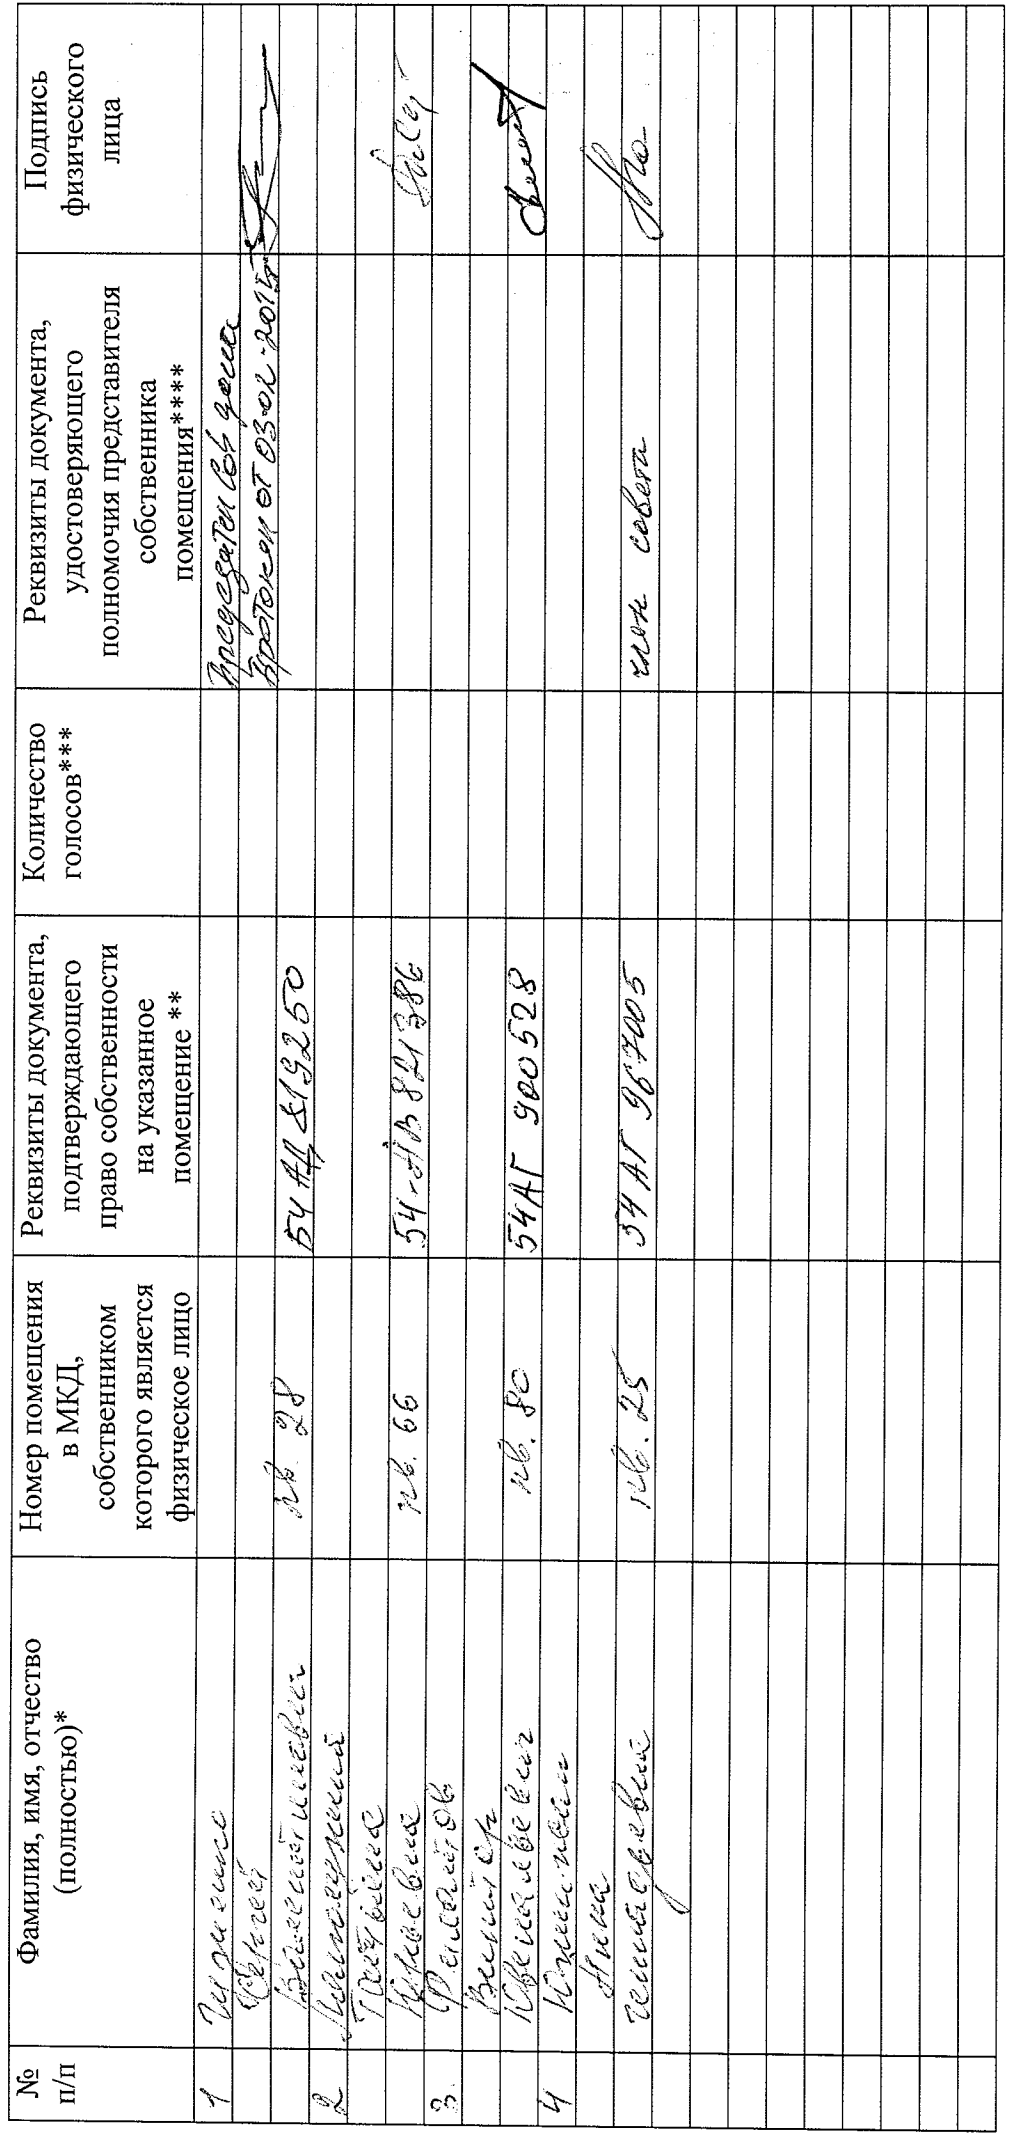 №
п/п
Фамилия, имя, отчество
(полностью)*
Номер помещения
в МКД,
собственником
которого является
физическое лицо
Реквизиты документа,
подтверждающего
право собственности
на указанное
помещение **
Количество
голосов***
Реквизиты документа,
удостоверяющего
полномочия представителя
собственника
помещения****
Подпись
физического
лица
1
Сергей
Валентинович
кв. 28
54 АД 219250
Протокол от 03.02.2015
2
Татьяна
Юрьевна
кв. 66
54-АВ 821386
3
Филатов
Виктор
Ювенальевич
кв. 80
54АГ 900528
4
Нина
кв. 25
54 АГ 967005
член совета